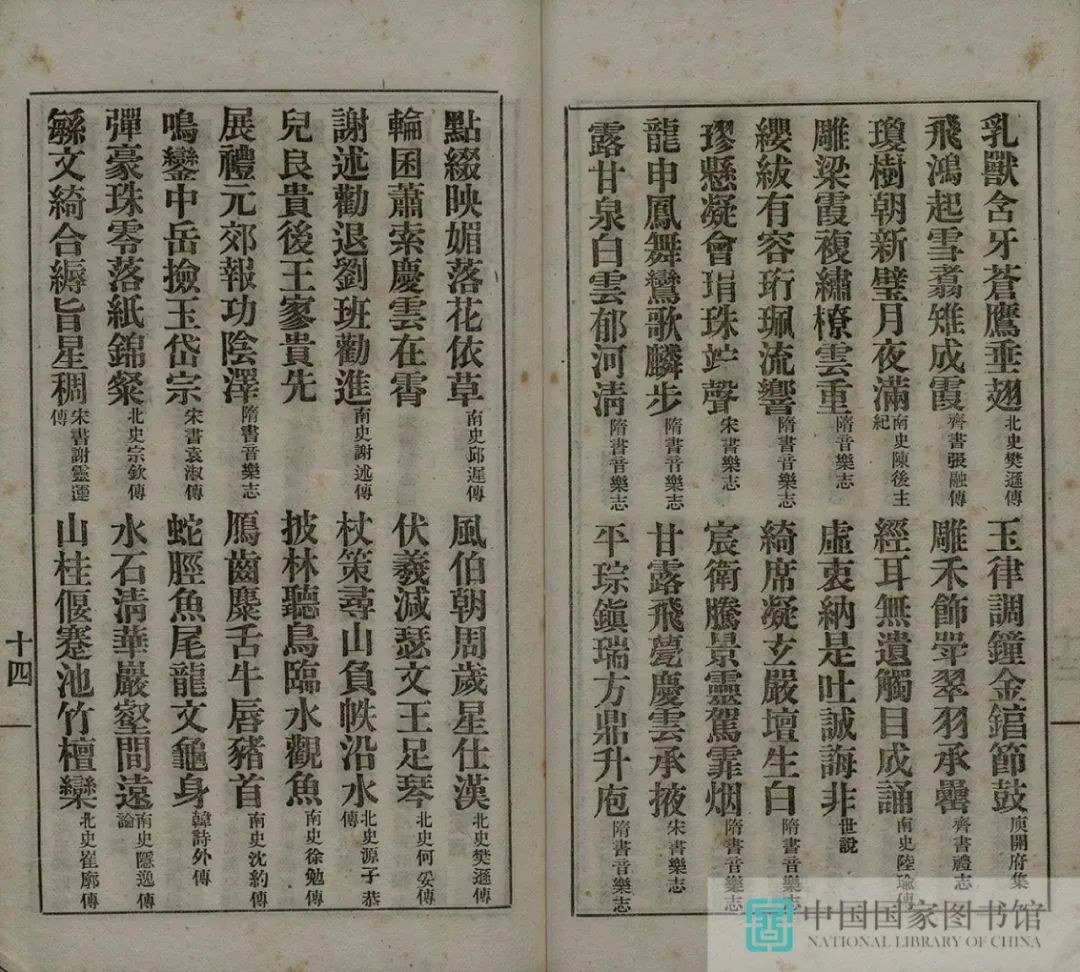 乳獸含牙蒼鷹垂翅北史樊遜傳玉律調鐘金錧節鼓庾開府集
飛鴻起雪翥雉成霞齊書張融傳雕禾飾斝翠羽承罍齊書禮志
瓊樹朝新璧月夜滿南史陳後主紀經耳無遺觸目成誦南史陸瑜傳
雕梁霞複繡橑雲重隋音樂志虛衷納是吐誠誨非世說
纓紱有容珩珮流響隋書音樂志綺席凝玄嚴壇生白隋書音樂志
璆懸凝會珠竚聲宋書樂志宸衛騰景靈駕霏烟隋書音樂志
龍申鳳舞鸞歌麟步隋書音樂志甘露飛甍慶雲承掖宋書樂志
露甘泉白雲郁河清隋書音樂志平琮鎮瑞方鼎升庖隋書音樂志
點綴映媚落花依草南史邱遲傳風伯朝周歲星仕漢北史樊遜傳
輪囷蕭索慶雲在霄伏羲減瑟文王足琴北史何妥傳
謝述勸退劉班勸進南史謝述傳杖策尋山負帙沿水北史源子恭傳
兒良貴後王寥貴先披林聽鳥臨水觀魚南史徐勉傳
展禮元郊報功陰澤隋書音樂志鴈齒麋舌牛唇豬首南史沈約傳
鳴鑾中岳撿玉岱宗宋書袁淑傳蛇脛魚尾龍文龜身韓詩外傳
彈豪珠零落紙錦粲北史宗欽傳水石清華巖壑間遠南史隱逸傳論
緐文綺合縟旨星稠宋書謝靈運傳山桂偃蹇池竹檀欒北史崔廓傳
十四
中国国家图书馆
NATIONAL LIBRARY OF CHINA